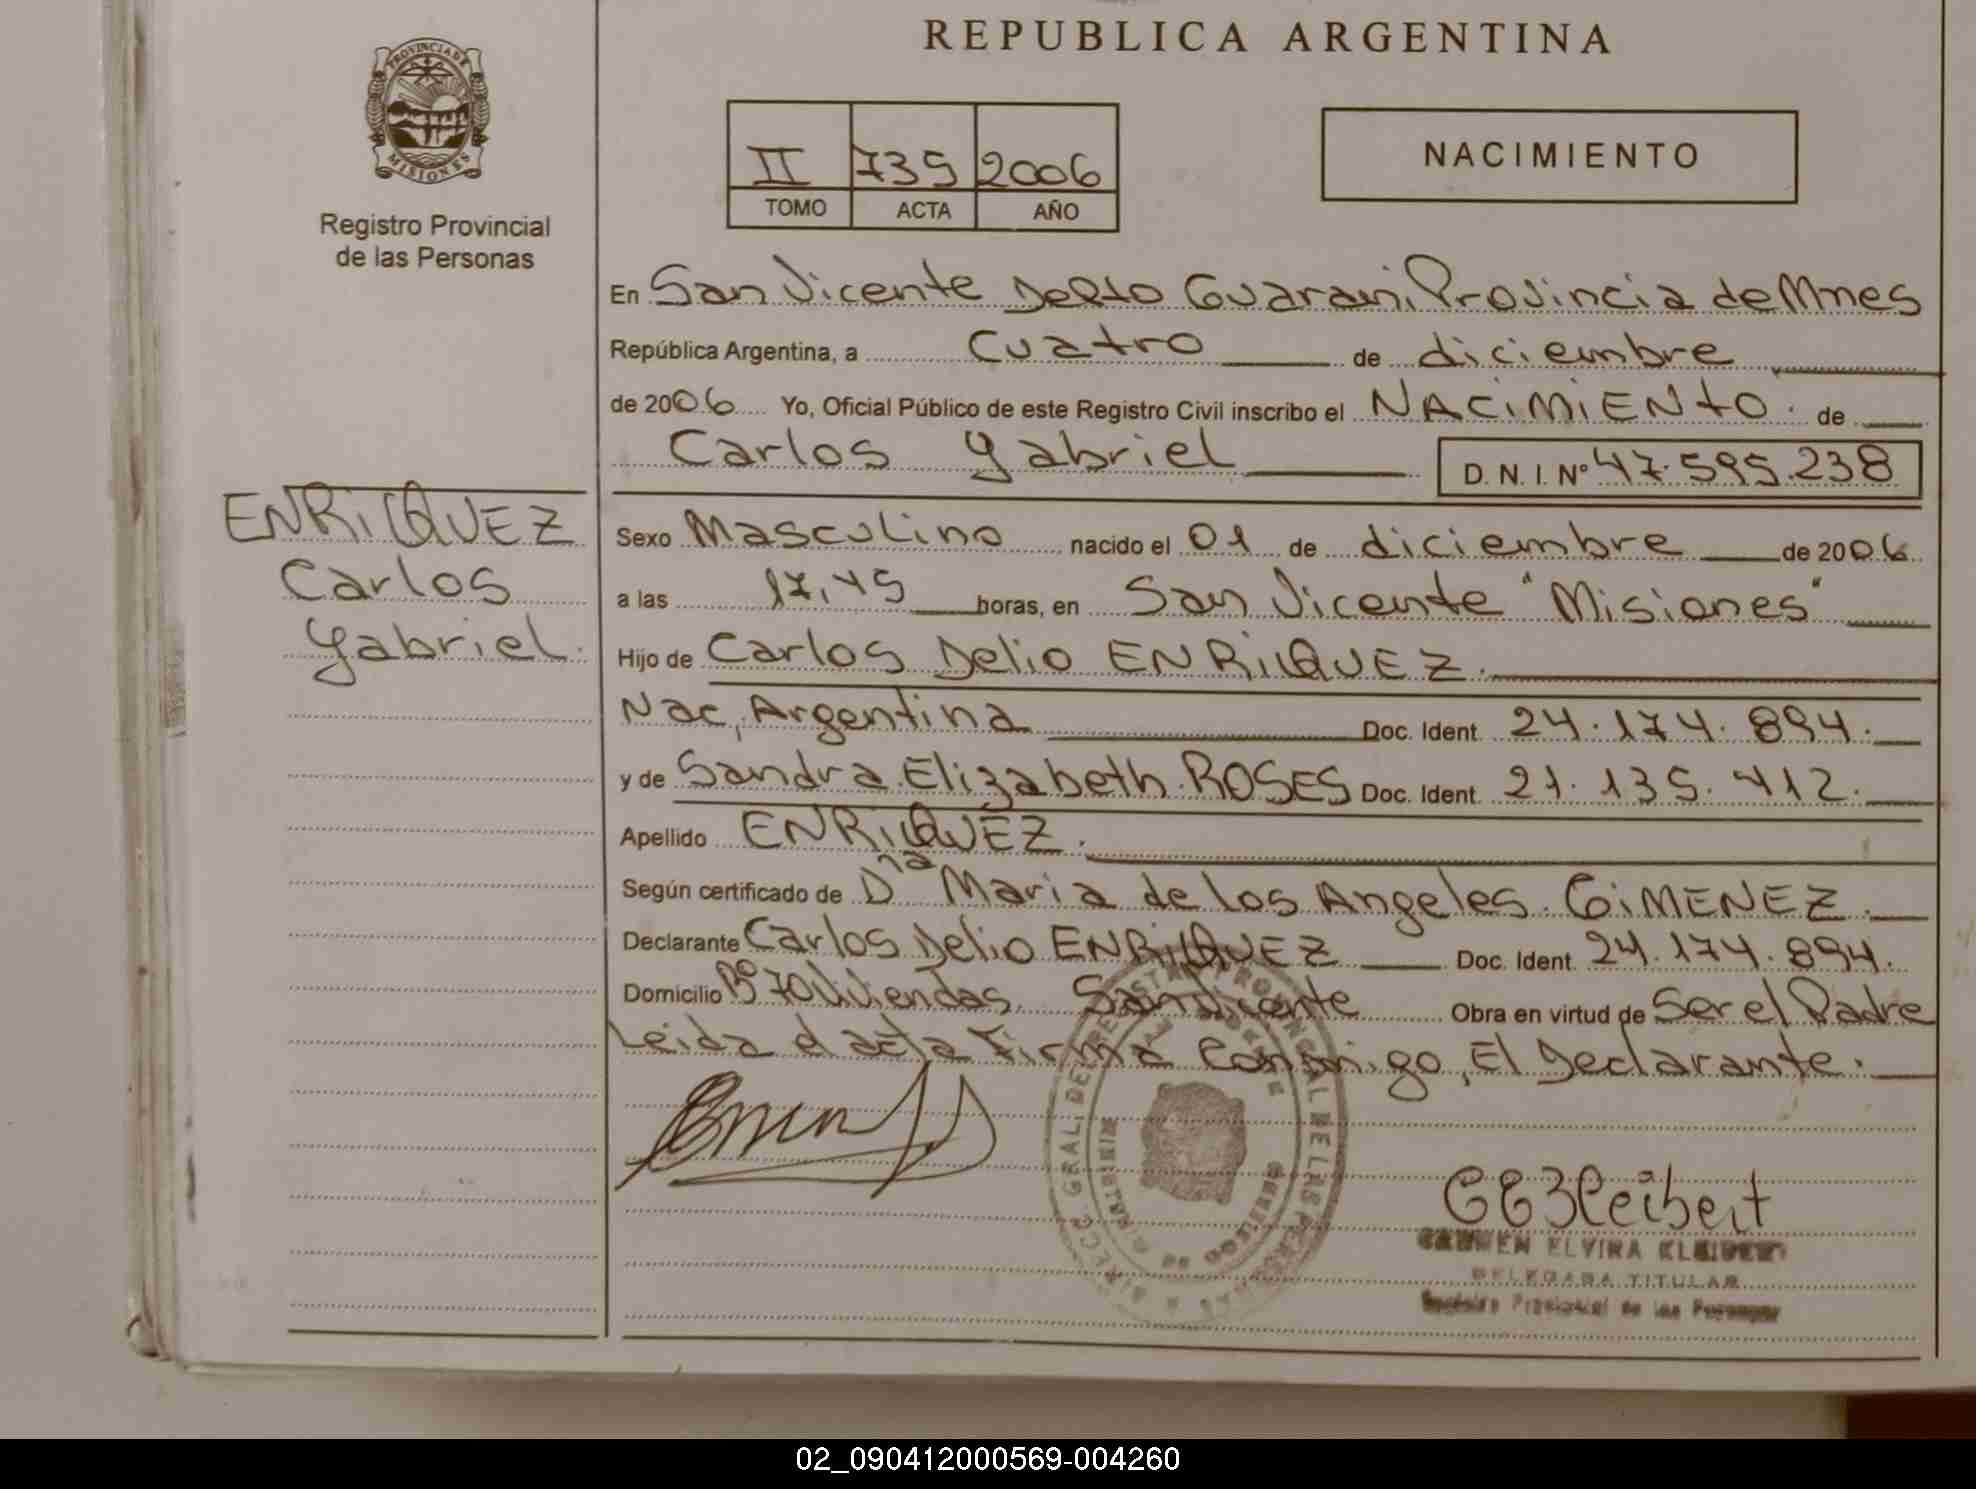 REPUBLICA ARGENTINA
PROVINCIA DE
MISIONES
Registro Provincial
de las Personas
II 735 2006
TOMO ACTA AÑO
NACIMIENTO
En San Vicente Depto Guarani. Provincia de Mnes
República Argentina, a Cuatro de diciembre
de 2006 Yo, Oficial Público de este Registro Civil inscribo el NACIMIENTO. de
Carlos Gabriel D. N. I. Nº 47.595.238
ENRIQUEZ
Carlos
Gabriel.
Sexo Masculino nacido el 01 de diciembre de 2006
a las 17,45 horas, en San Vicente "Misiones"
Hijo de Carlos Delio ENRIQUEZ.
Nac, Argentina Doc. Ident. 24.174.894.
y de Sandra Elizabeth ROSES Doc. Ident. 21.135.412.
Apellido ENRIQUEZ.
Según certificado de Dña Maria de los Angeles GIMENEZ.
Declarante Carlos Delio ENRIQUEZ Doc. Ident. 24.174.894.
Domicilio Bº 70 Viviendas, San Vicente Obra en virtud de Ser el Padre
Leida el acta Firma Conmigo, El Declarante.
CARMEN ELVIRA KLEIBERT
DELEGADA TITULAR
Registro Provincial de las Personas
02_090412000569-004260